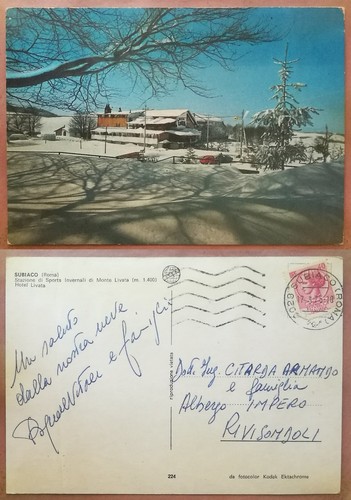 SUBIACO (Roma)
Stazione di Sports Invernali di Monte Livata (m. 1.400)
Hotel Livata
SUBIACO (ROMA)
Un saluto
dalla nostra neve
e famiglia
riproduzione vietata
Dott. Ing. CITARDA ARMANDO
e famiglia
Albergo IMPERO
RIVISONDOLI
224
da fotocolor Kodak Ektachrome